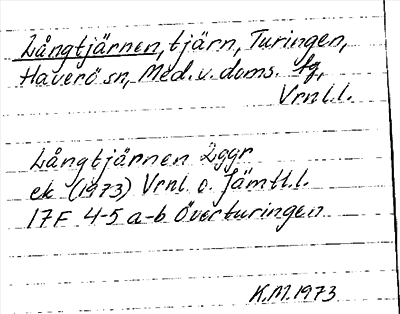 Långtjärnen, tjärn, Turingen,
Haverö sn, Med. v. doms. fg,
Vrnl.l.
Långtjärnen 2ggr
ek (1973) Vrnl o. Jämtl.l.
17F 4-5 a-b Överturingen
K.M. 1973